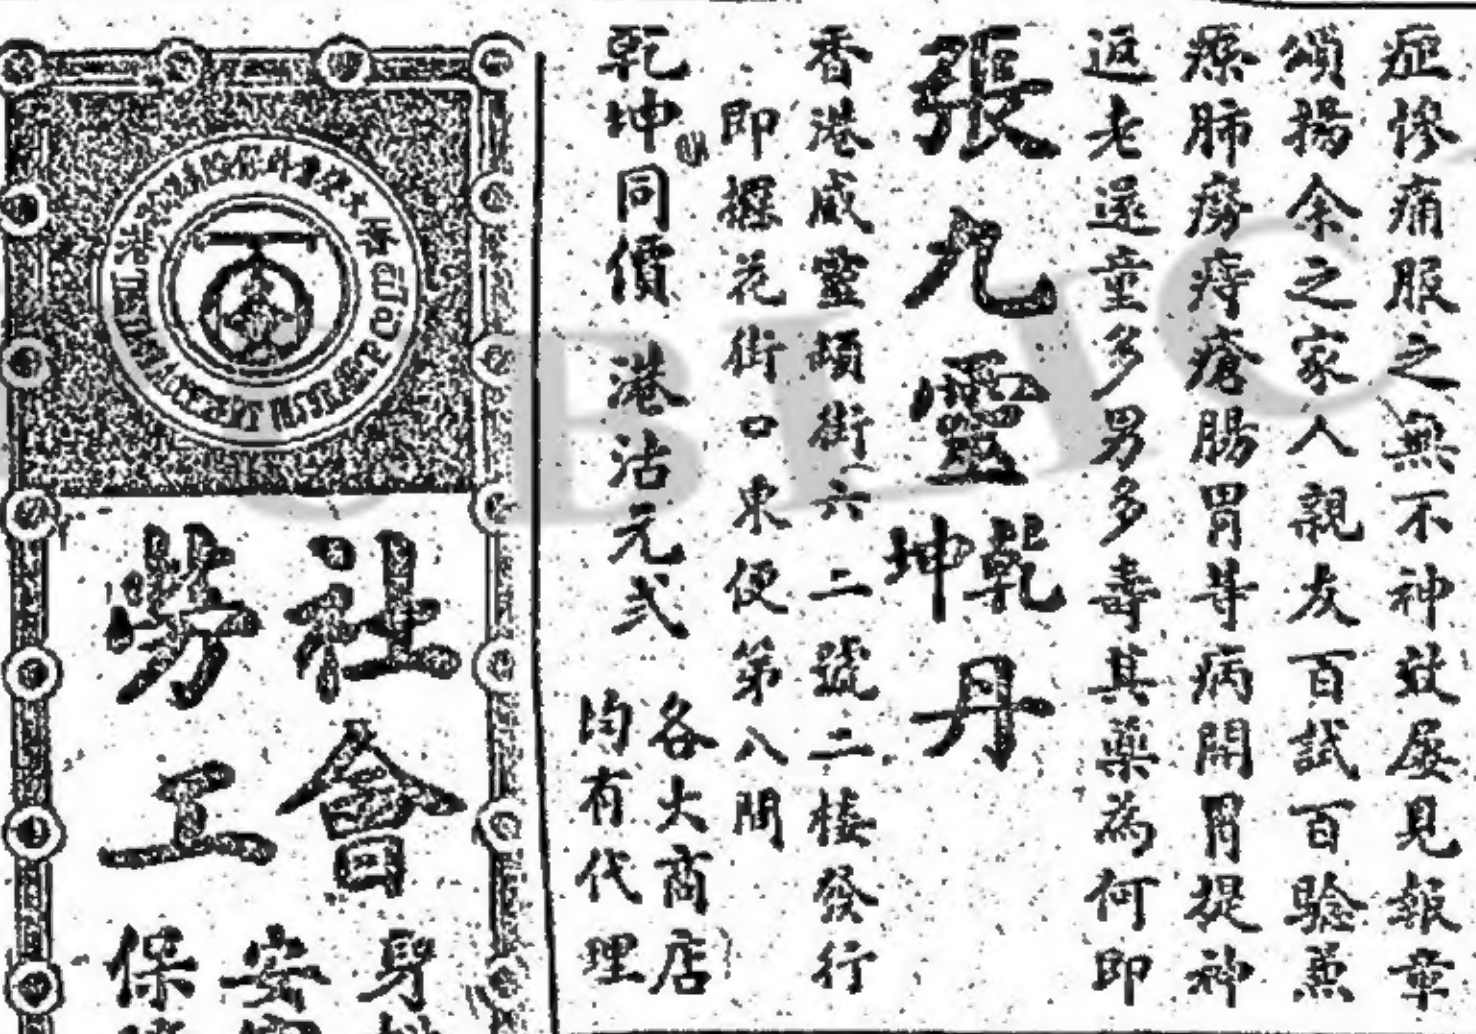 症慘痛服之無不神效屡見報章
頌揚余之家人親友百試百驗兼
療肺癆痔瘡腸胃等病開胃提神
返老還童多男多壽其藥為何即
張九靈乾坤丹
香港威靈頓街六二號二楼發行
即擺花街口東便第八間
乾坤同價 港沽元弍 各大商店均有代理
社會
勞工
身
安
保